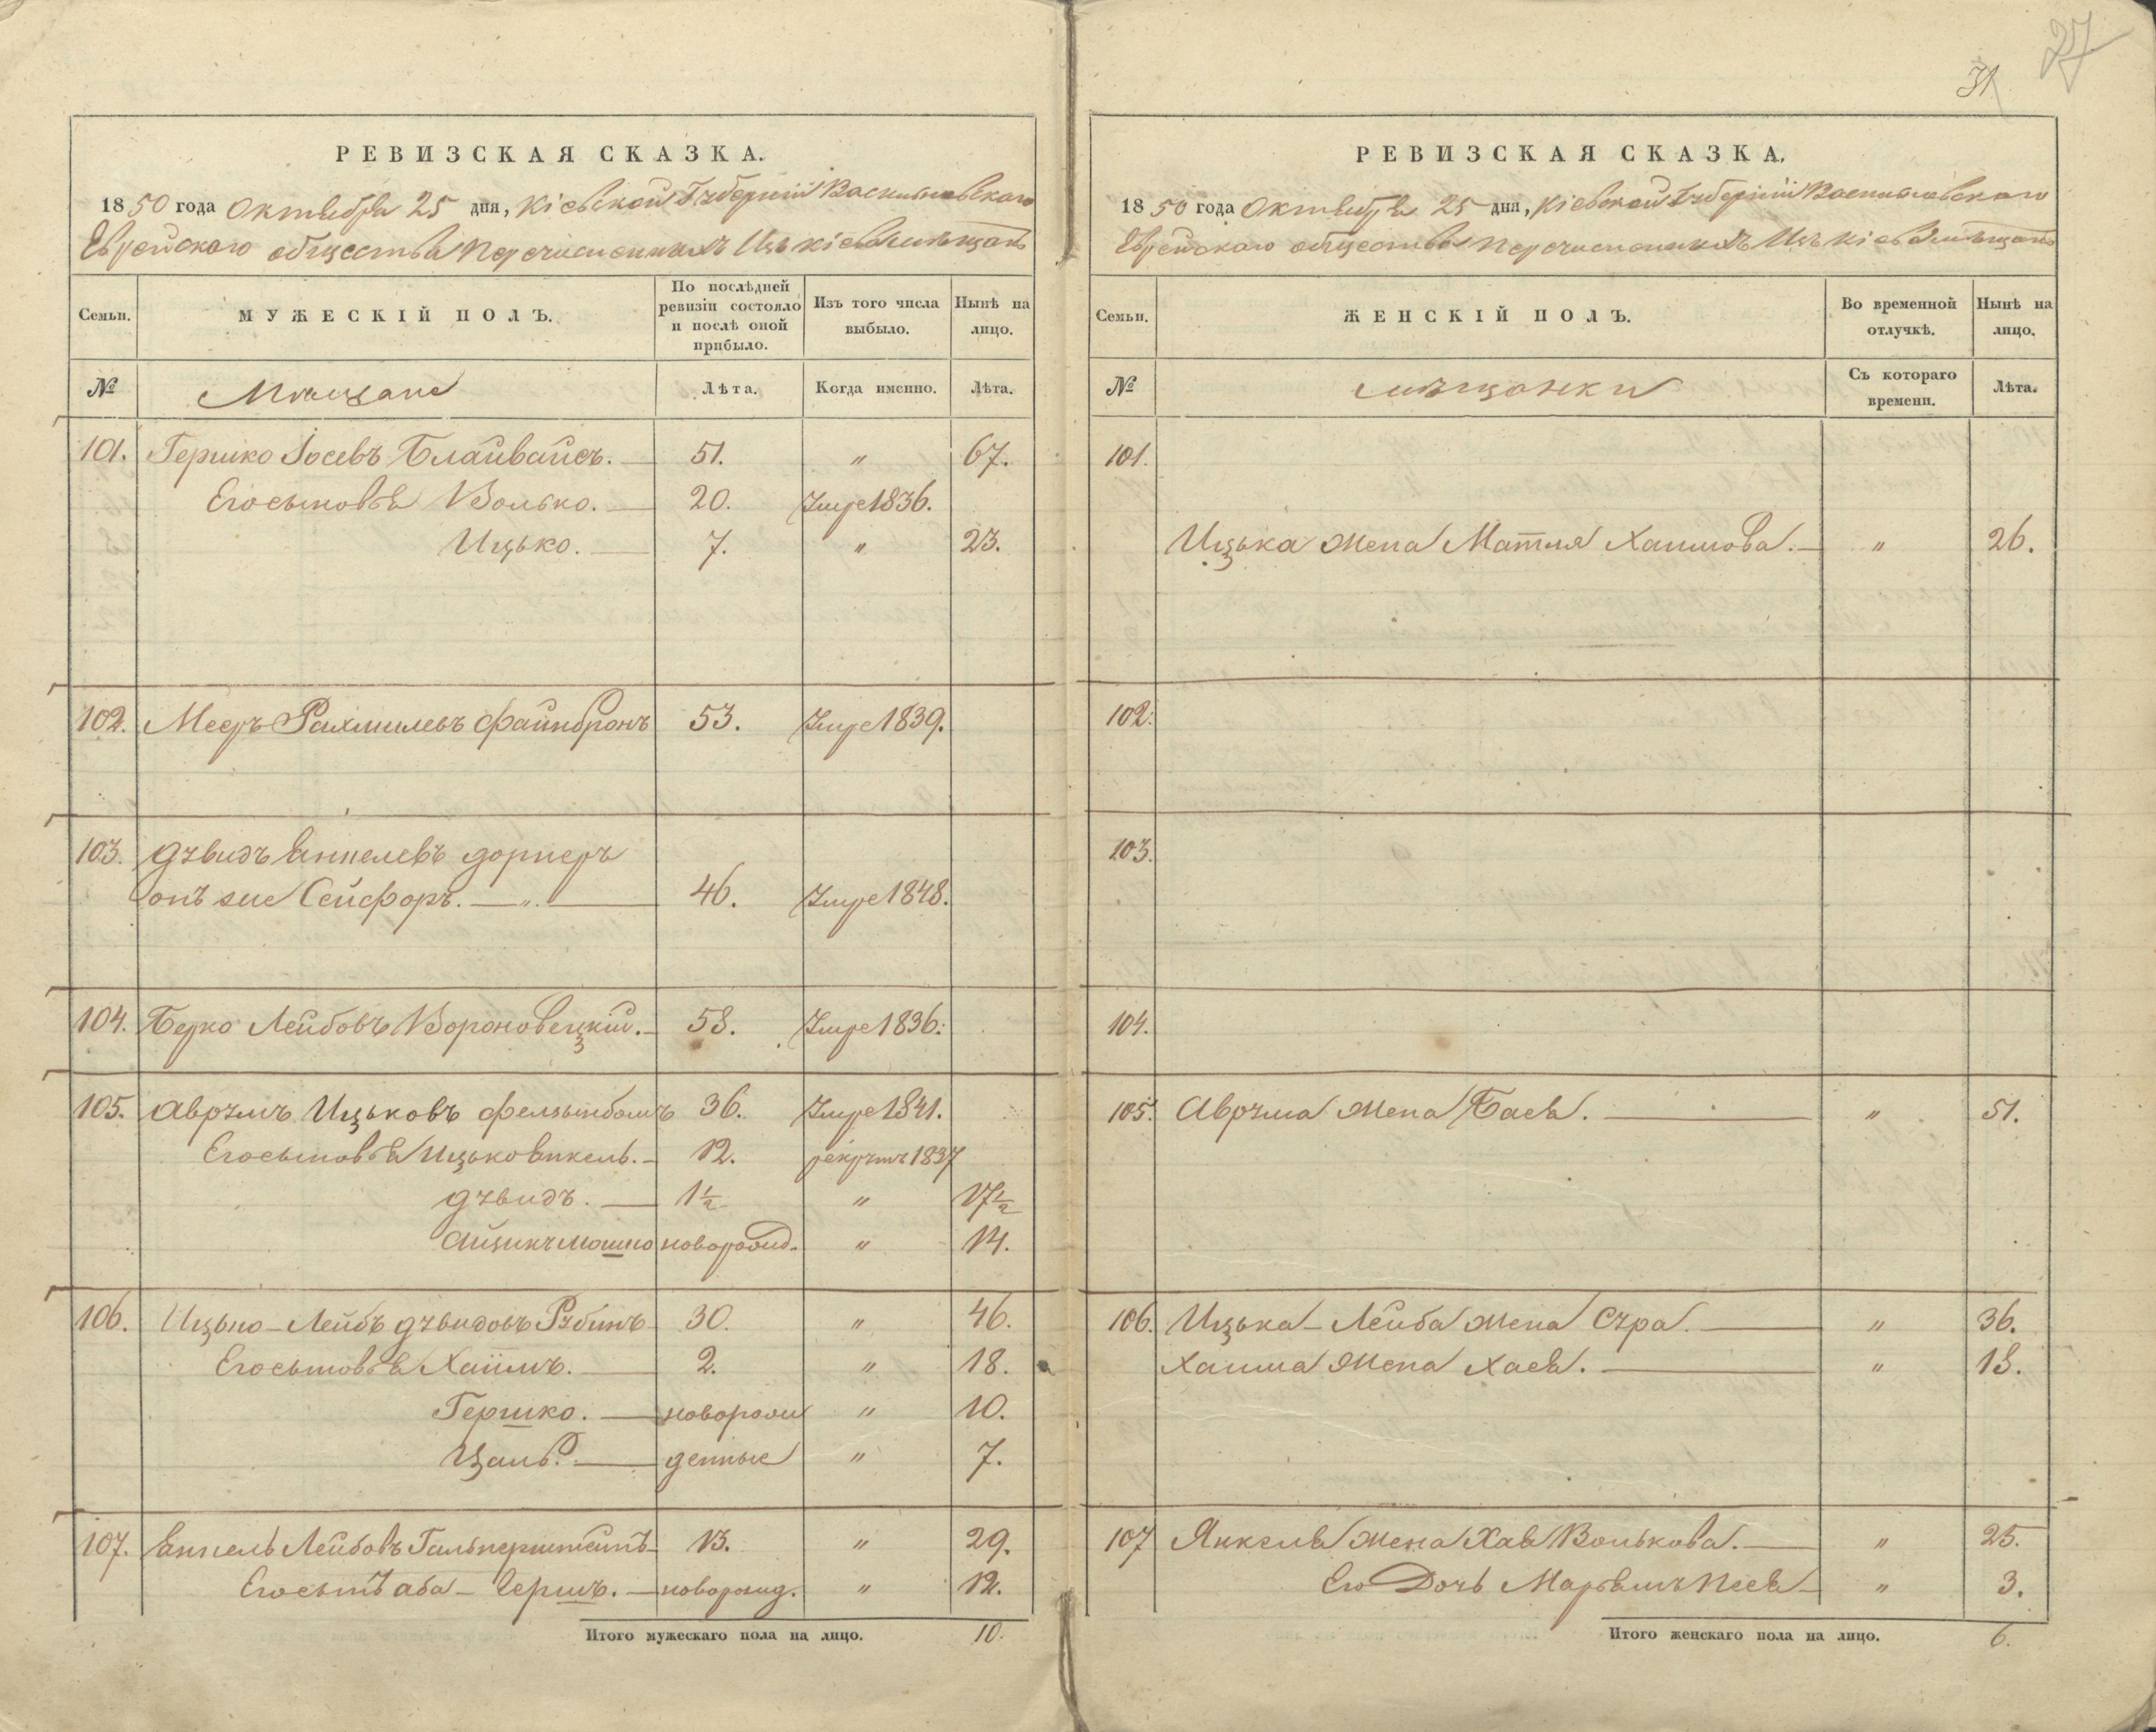 27
31
РЕВИЗСКАЯ СКАЗКА.
1850 года Октября 25 дня, Кіевской Губерніи Васильковскаго
Еврейскаго общества перечисленныхъ Изъ Кіева мѣщанъ
Семьи.
МУЖЕСКІЙ ПОЛЪ.
По послѣдней ревизіи состояло и послѣ оной прибыло.
Изъ того числа выбыло.
Нынѣ на лицо.
№
Мѣщане
Лѣта.
Когда именно.
Лѣта.
101. Гершко Іосевъ Блайвайсъ. 51. " 67.
Его сыновья Волько. 20. Умре 1836.
Ицько. 7. " 23.
102. Мееръ Рахмилевъ Файнбронъ 53. Умре 1839.
103. Дувидъ Янкелевъ Дорнеръ
онъ же Сейферъ. — " — 46. Умре 1848.
104. Берко Лейбовъ Вороновецкій. 58. Умре 1836.
105. Аврумъ Ицьковъ Фельзынбомъ 36. Умре 1841.
Его сыновья Ицько Янкель. 12. рекрутъ 1837
Дувидъ. 1½ " 17½
Айзикъ Мошко новорожд. " 14.
106. Ицько-Лейбъ Дувидовъ Рубинъ 30. " 46.
Его сыновья Хаимъ. 2. " 18.
Гершко. новорож " 10.
Цаль. денные " 7.
107. Янкель Лейбовъ Гальперштейнъ 13. " 29.
Его сынъ Аба-Гершъ. новорожд. " 12.
Итого мужескаго пола на лицо. 10.
РЕВИЗСКАЯ СКАЗКА.
1850 года Октября 25 дня, Кіевской Губерніи Васильковскаго
Еврейскаго общества перечисленныхъ Изъ Кіева мѣщанъ
Семьи.
ЖЕНСКІЙ ПОЛЪ.
Во временной отлучкѣ.
Нынѣ на лицо.
№
мѣщанки
Съ котораго времени.
Лѣта.
101.
Ицька жена Матля Хаимова. " 26.
102.
103.
104.
105. Аврума жена Бася. " 51.
106. Ицька-Лейба жена Сура. " 36.
Хаима жена Хася. " 18.
107 Янкеля жена Хая Волькова. " 25.
Его Дочь Марьямъ Песя " 3.
Итого женскаго пола на лицо. 6.